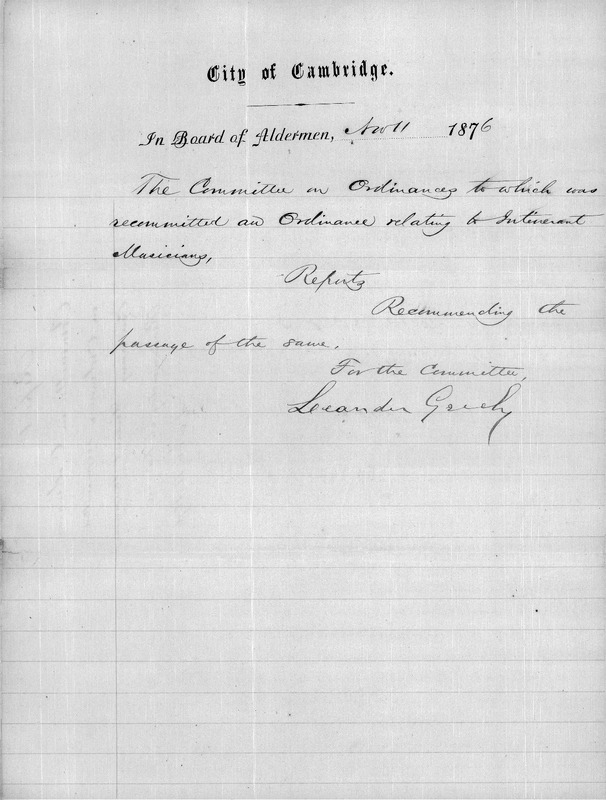 City of Cambridge.
In Board of Aldermen, Nov 11 1876
The Committee on Ordinances to which was
recommitted an Ordinance relating to Intinerant
Musicians,
Reports
Recommending the
passage of the same.
For the Committee,
Leander Greely